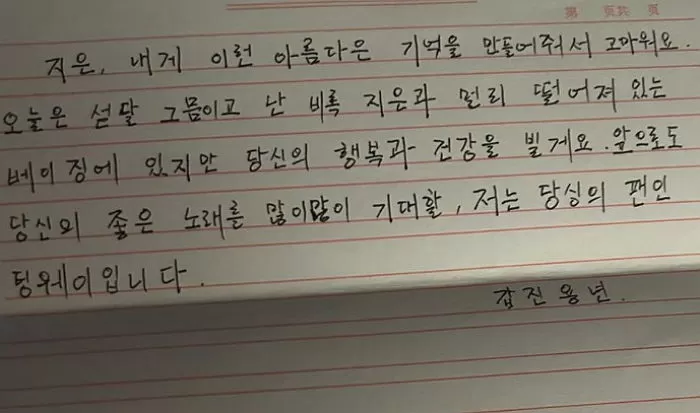 第 页共 页
지은, 내게 이런 아름다은 기억을 만들어줘서 고마워요.
오늘은 섣달 그믐이고 난 비록 지은과 멀리 떨어져 있는
베이징에 있지만 당신의 행복과 건강을 빌게요. 앞으로도
당신의 좋은 노래를 많이많이 기대할, 저는 당싱의 팬인
팅웨이입니다.
갑진용년.